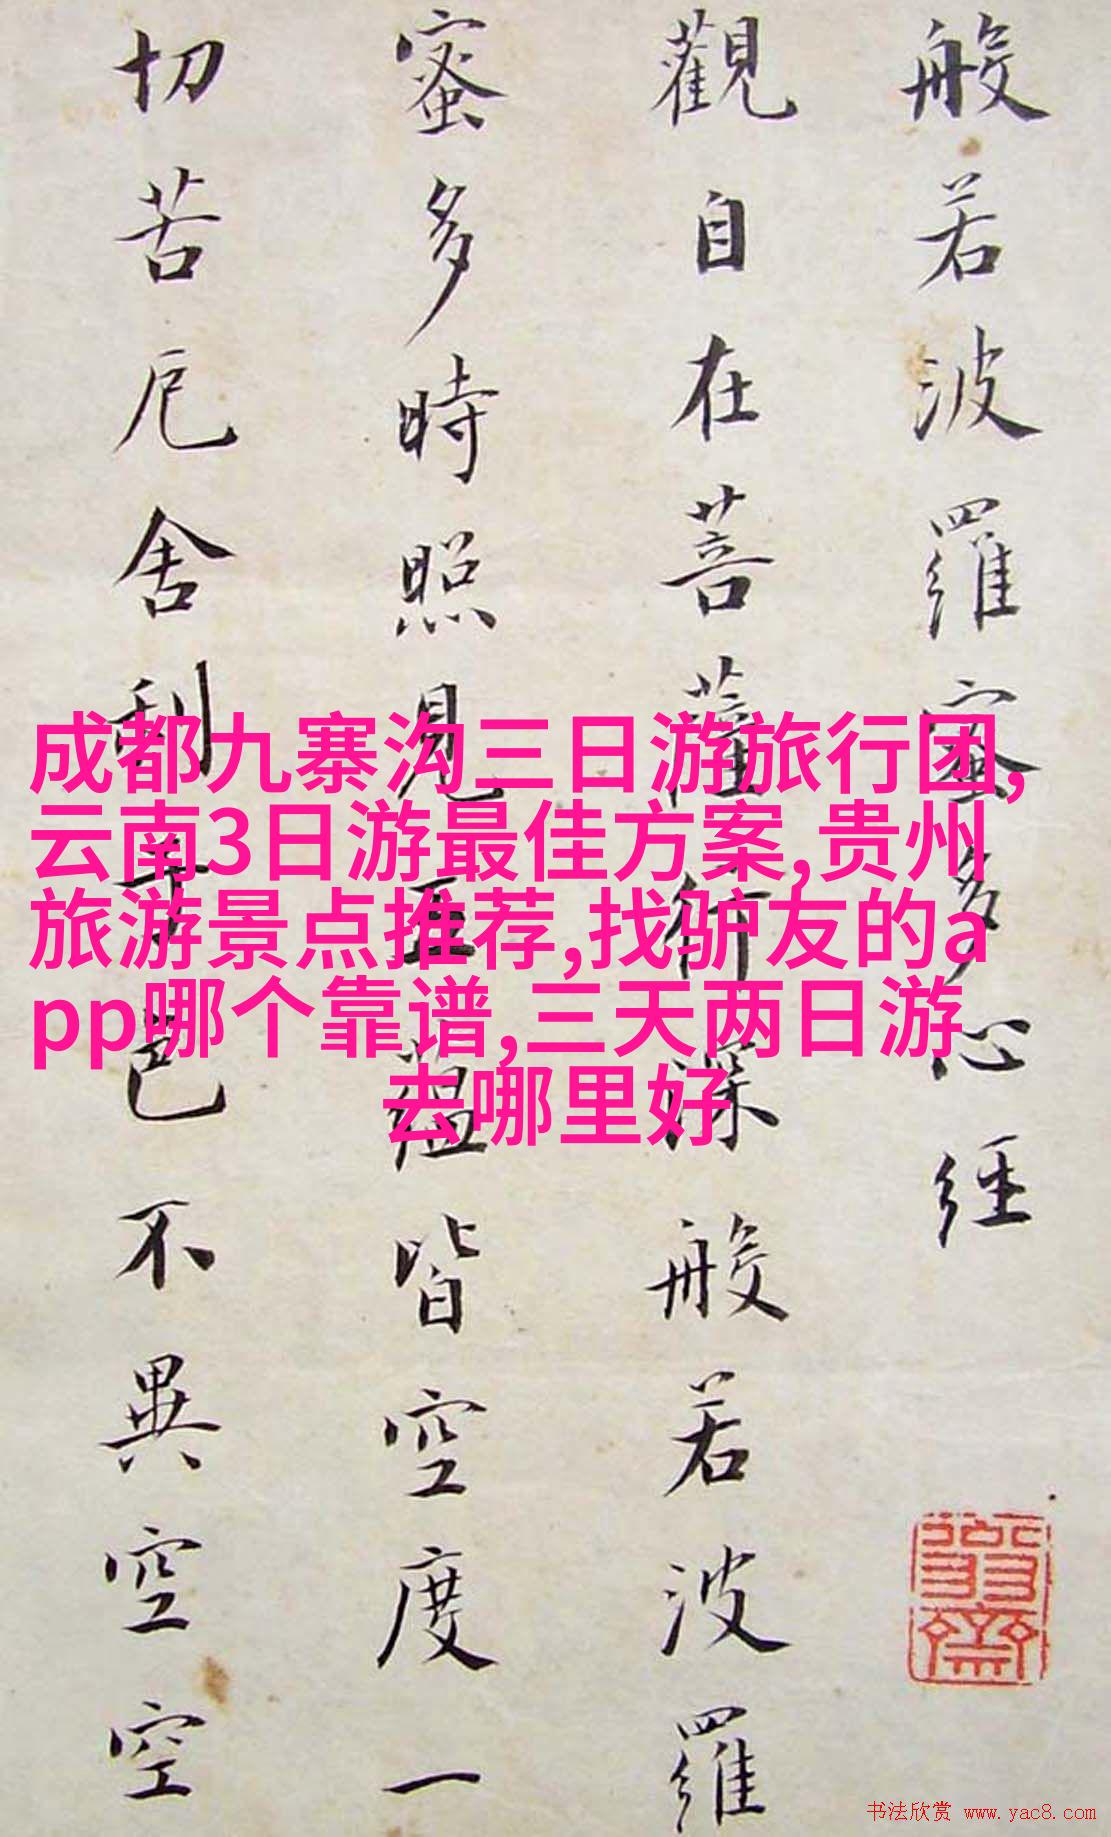 般若波羅蜜多心經
觀自在菩薩行深般若波羅
蜜多時照見五蘊皆空度一
切苦厄舍利子色不異空空
成都九寨沟三日游旅行团,
云南3日游最佳方案,贵州
旅游景点推荐,找驴友的a
pp哪个靠谱,三天两日游
去哪里好
书法欣赏 www.yac8.com